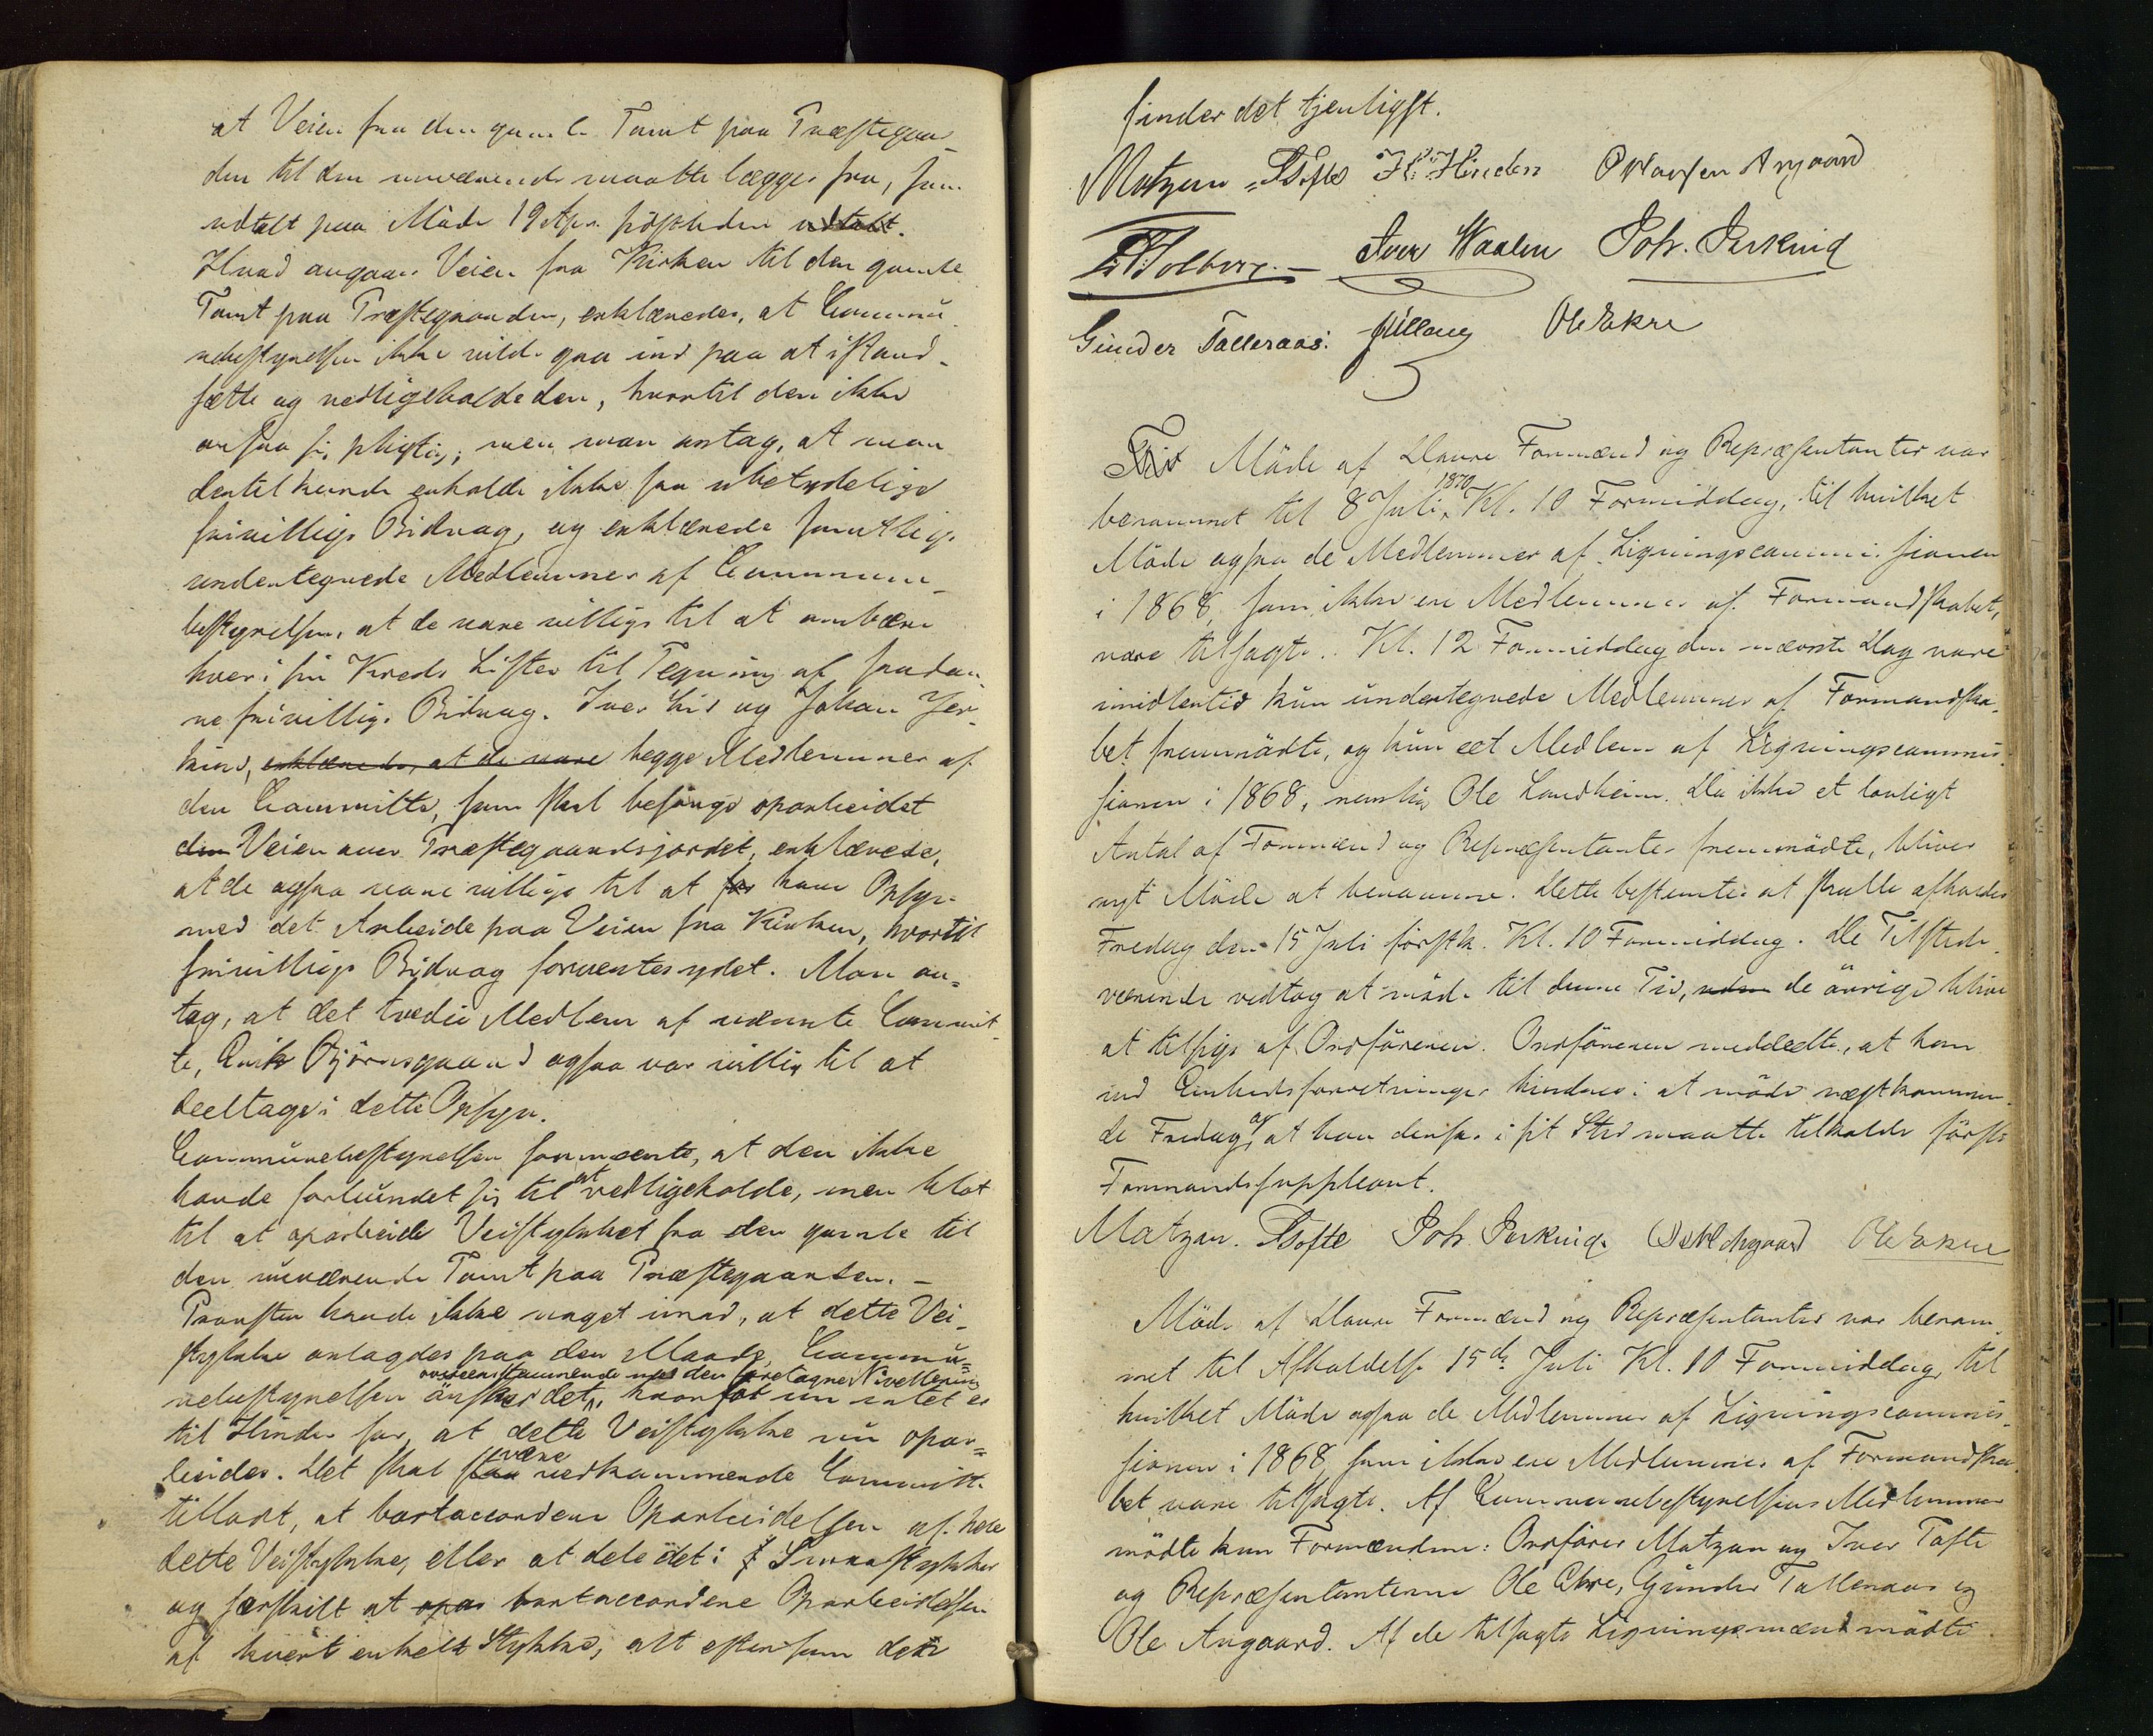 at Veien fra den gamle Tomt paa Præstegaar-
den til den nuværende maatte lægges fra, som
udtalt paa Møde 19 Apr. sidstleden udtalt.
Hvad angaar Veien fra Kirken til den gamle
Tomt paa Præstegaarden, erklæredes, at Commu-
nebestyrelsen ikke vilde gaa ind paa at istand-
sætte og vedligeholde den, hvortil den ikke
ansaa sig pligtig; men man antog, at man
dertil kunde erholde ikke saa ubetydelige
frivillige Bidrag, og erklærede samtlige
undertegnede Medlemmer af Commune-
bestyrelsen, at de vare villige til at ombære
hver i sin Kreds Lister til Tegning af saadan-
ne frivillige Bidrag. Iver Lie og Johan Jer-
kind, erklærede, at de vare begge Medlemmer af
den Committe, som skal besørge oparbeidet
den Veien over Præstegaardsjordet, erklærede,
at de ogsaa vare villige til at for have Opsyn
med det Arbeide paa Veien fra Kirken, hvortil
frivillige Bidrag forventes ydet. Man an-
tog, at det tredie Medlem af nævnte Commit-
te, Erik Bjørnsgaard ogsaa var villig til at
deeltage i dette Opsyn.
Communebestyrelsen formeente, at den ikke
havde forbundet sig til at vedligeholde, men blot
til at oparbeide Veistykket fra den gamle til
den nuværende Tomt paa Præstegaarden. –
Provsten havde ikke noget imod, at dette Vei-
stykke anlagdes paa den Maade, Commu-
overeenstemmende med den foretagne Nivellering
nebestyrelsen ønsker det, hvorfor nu intet er
til Hinder for, at dette Veistykke nu opar-
være
beides. Det skal staa vedkommende Committe
tilladt, at bortaccordere Oparbeidelsen af hele
dette Veistykke, eller at dele det i Smaastykker
og særskilt at opar bortaccordere Oparbeidelsen
af hvert enkelt Stykke, alt eftersom det
finder det tjenligst.
Matzau ITofte H. Hinden O Klausen Angaard
Iver Waalen Joh. Jerkind
Gunder Talleraas. Ole Ekre
Møde af Dovre Formænd og Repræsentanter var
1870
berammet til 8 Juli, Kl. 10 Formiddag, til hvilket
Møde ogsaa de Medlemmer af Ligningscommissionen
i 1868, som ikke ere Medlemmer af Formandskabet,
vare tilsagte. Kl. 12 Formiddag den nævnte Dag vare
imidlertid kun undertegnede Medlemmer af Formandska-
bet fremmødte, og kun eet Medlem af Ligningscommis-
sionen i 1868, nemlig Ole Landheim. Da ikke et lovligt
Antal af Formænd og Repræsentanter fremmødte, bliver
nyt Møde at beramme. Dette bestemtes at skulle afholdes
Fredag den 15 Juli førstk. Kl. 10 Formiddag. De Tilstede-
værende vedtog at møde til denne Tid, de øvrige blive
at tilsige af Ordføreren. Ordføreren meddeelte, at han
ved Embedsforretninger hindres i at møde næstkommen-
de Fredag, og at han derfor i sit Sted maatte tilkalde første
Formandssuppleant.
Matzau. ITofte Joh Jerkind. Ole Ekre
Møde af Dovre Formænd og Repræsentanter var beram-
met til Afholdelse 15de Juli Kl. 10 Formiddag, til
hvilket Møde ogsaa de Medlemmer af Ligningscommis-
sionen i 1868, som ikke ere Medlemmer af Formandska-
bet, vare tilsagte. Af Communebestyrelsens Medlemmer
mødte kun Formændene: Ordfører Matzau og Iver Tofte
og Repræsentanterne Ole Ekre, Gunder Talleraas og
Ole Angaard. Af de tilsagte Ligningsmænd mødte